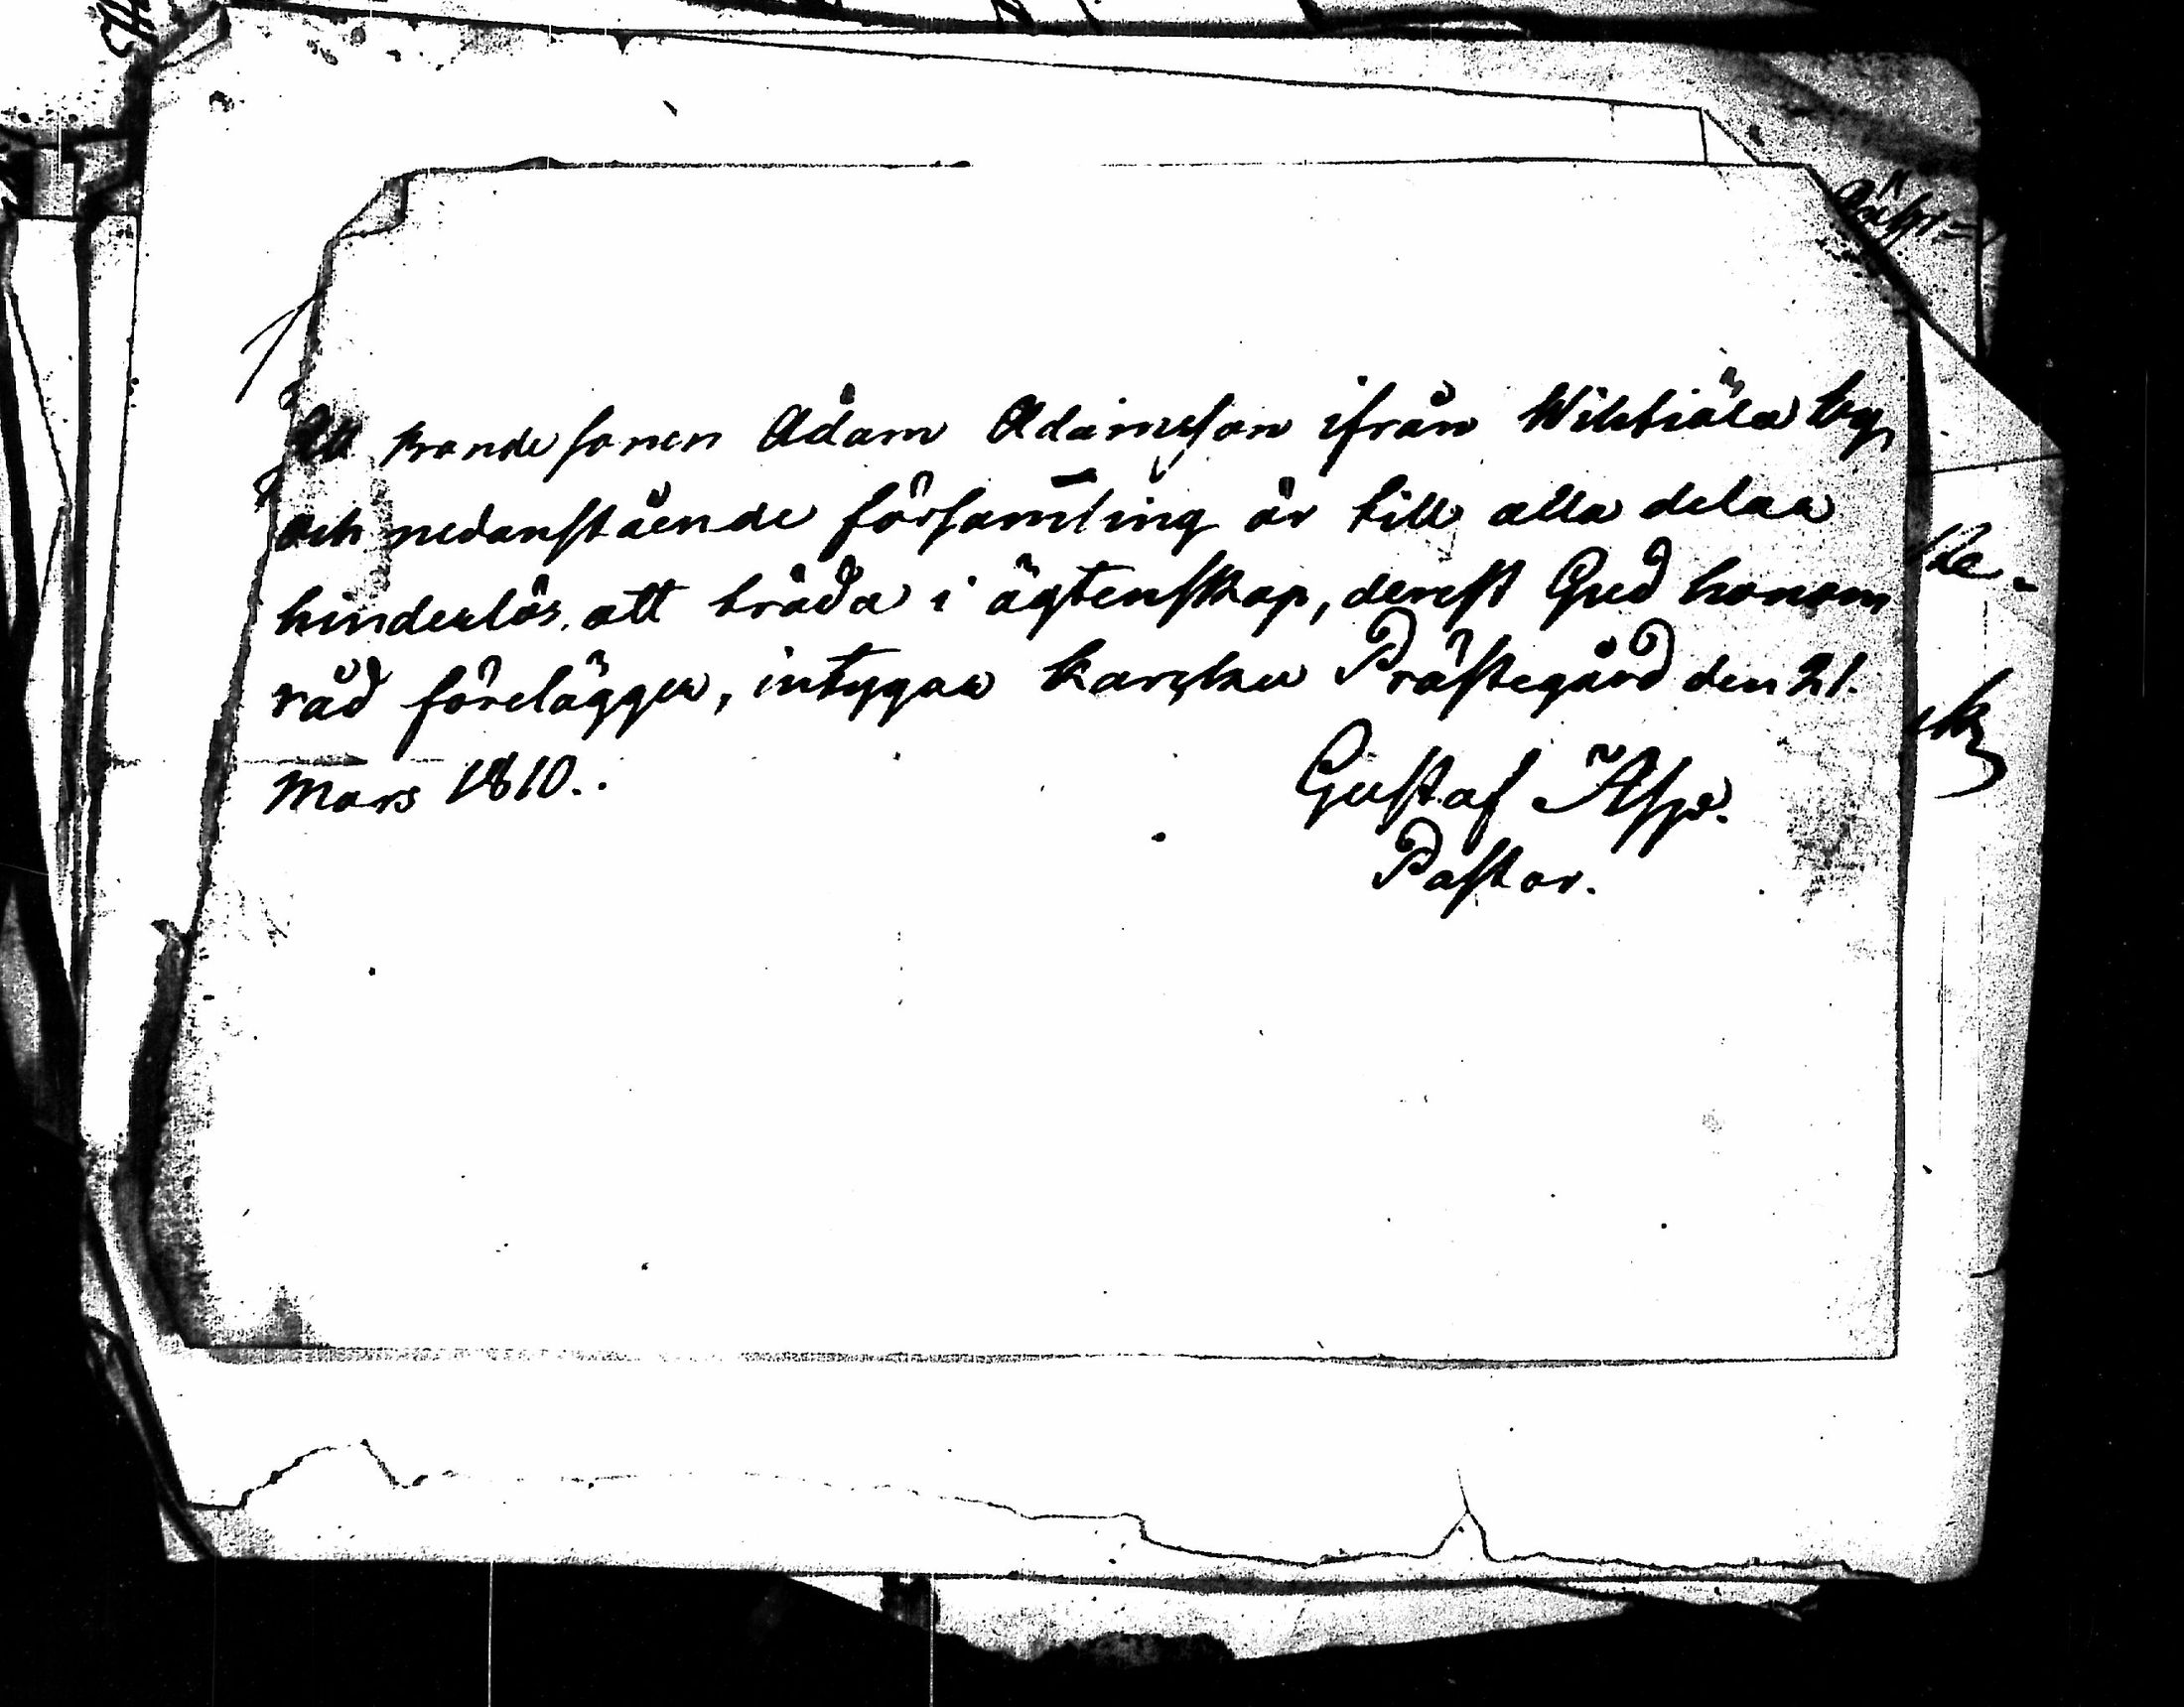 Att bondesonen Adam Adamsson ifrån Wiktiäla by,
och nedanstående församling är till alla delar
hinderlös, att träda i ägtenskap, derest Gud honom
råd förelägger, intygar Karsku Prästegård den 21.
Mars 1810..
Gustaf Asp.
Pastor.